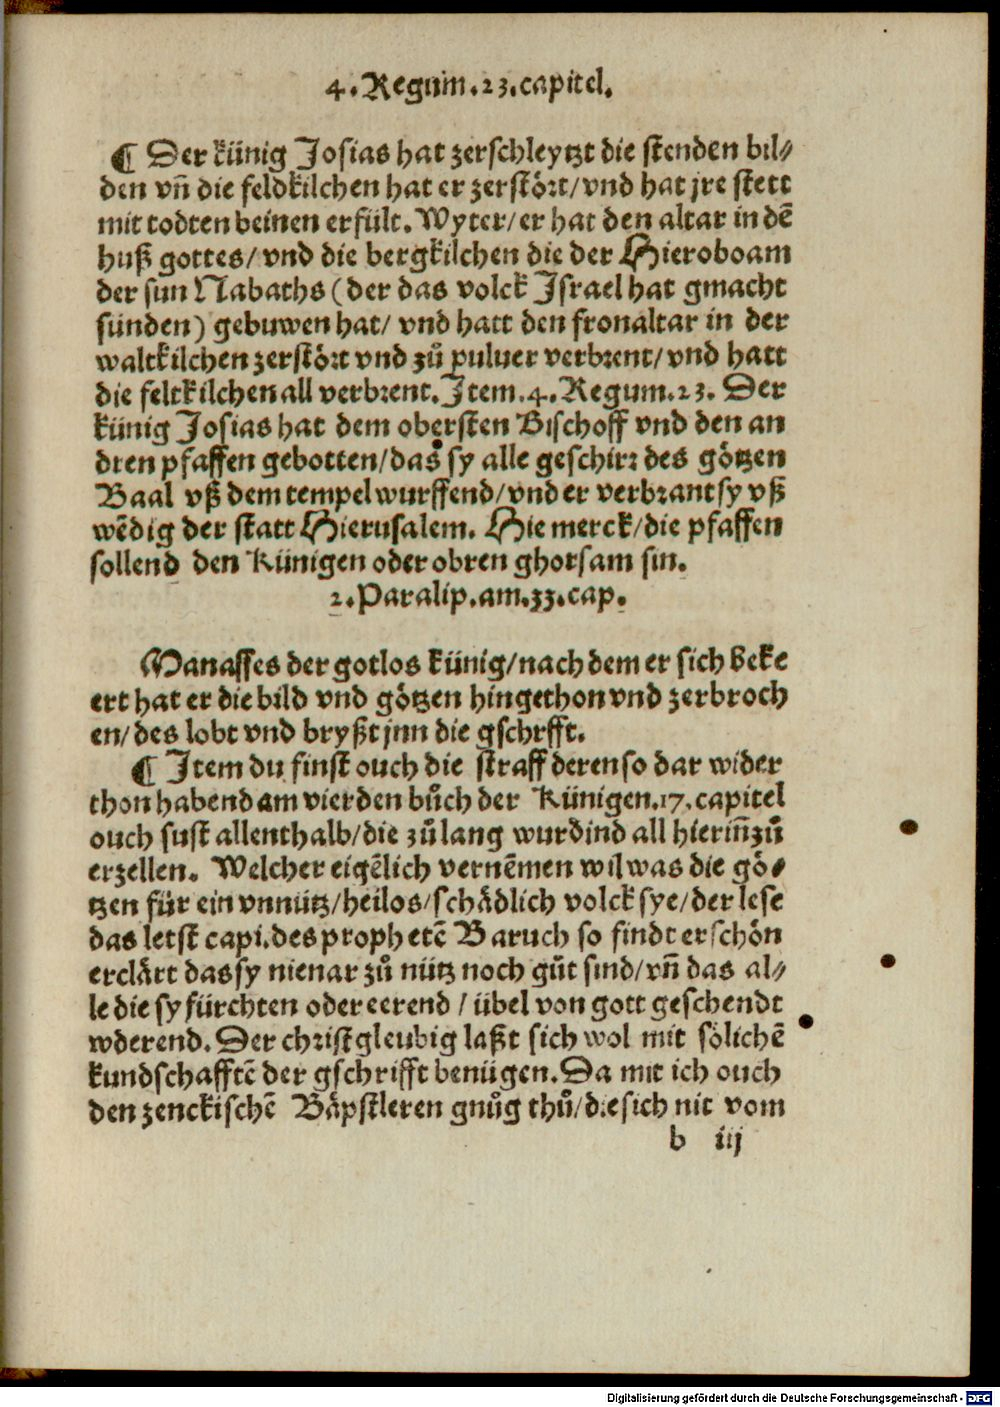 4. Regum. 23. capitel.
¶ Der künig Josias hat zerschleytzt die stenden bil⸗
den vñ die feldkilchen hat er zerstört/vnd hat jre stett
mit todten beinen erfült. Wyter/er hat den altar in dē
huß gottes/vnd die bergkilchen die der Hieroboam
der sun Nabaths (der das volck Israel hat gmacht
sünden) gebuwen hat/ vnd hatt den fronaltar in der
waltkilchen zerstört vnd zů puluer verbrent/vnd hatt
die feltkilchen all verbrent. Item. 4. Regum. 23. Der
künig Josias hat dem obersten Bischoff vnd den an
dren pfaffen gebotten/das sy alle geschirr des götzen
Baal vß dem tempel wurffend/vnd er verbrant sy vß
wēdig der statt Hierusalem. Hie merck/die pfaffen
sollend den Künigen oder obren ghorsam sin.
2. Paralip. am. 33. cap.
Manasses der gotlos künig/nach dem er sich beke
ert hat er die bild vnd götzen hingethon vnd zerbroch
en/des lobt vnd bryßt jnn die gschrfft.
¶ Item du finst ouch die straff deren so dar wider
thon habend am vierden bůch der Künigen. 17. capitel
ouch sust allenthalb/die zů lang wurdind all hierin̄ zů
erzellen. Welcher eigēlich vernēmen wil was die gö⸗
tzen für ein vnnütz/heilos/schädlich volck sye/der lese
das letst capi. des prophetē Baruch so findt er schön
erclärt das sy nienar zů nütz noch gůt sind/vñ das al⸗
le die sy fürchten oder eerend / übel von gott geschendt
wderend. Der christgleubig laßt sich wol mit sölichē
kundschafftē der gschrifft benügen. Da mit ich ouch
den zenckischē Bäpstleren gnůg thů/die sich nit vom
b iij
Digitalisierung gefördert durch die Deutsche Forschungsgemeinschaft - DFG